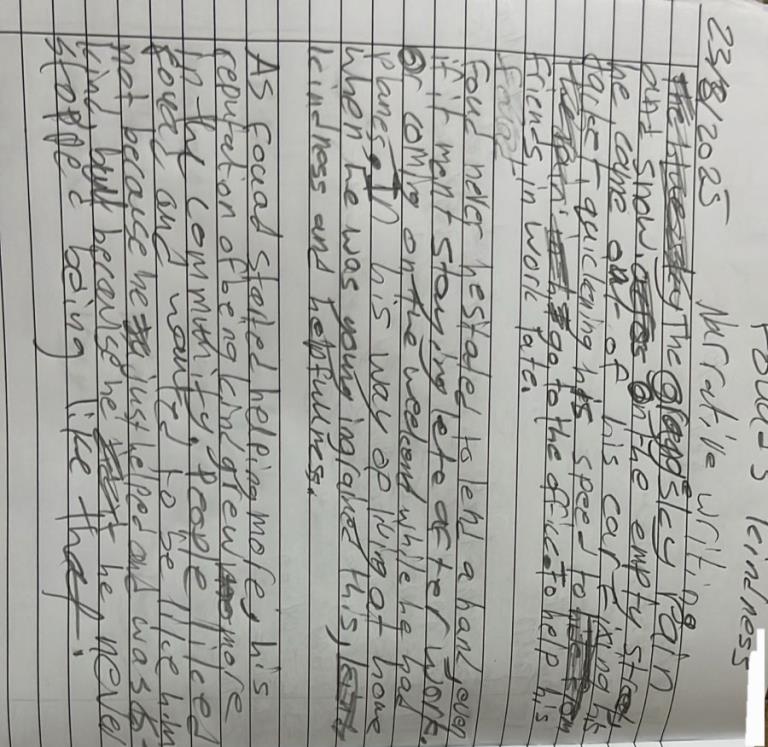 Fouad's kindness
23/8/2025 Narrative writing
The grey sky rain
and snow on the empty street
he came out of his car Fixing his
jacket quickening his speed to
go to the office to help his
friends in work late.
Foud never hestated to lend a hand even
if it ment staying late after work.
Or coming on the weekend while he had
planes. In his way of living at home
when he was young ingrained this,
kindness and helpfullness.
As Fouad started helping morey his
reputation of being kind grew more
in the community. People liked
Fouad, and wanted to be like him
not because he just helped and was
kind but because he he never
stopped being like that.